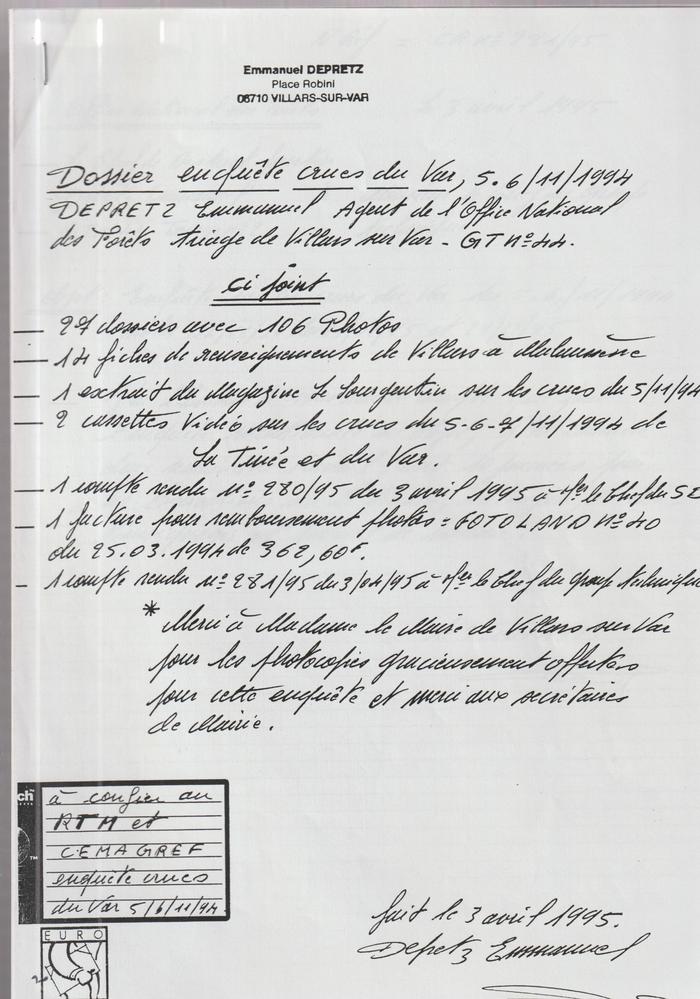 Emmanuel DEPRETZ
Place Robini
06710 VILLARS-SUR-VAR
Dossier enquête crues du Var, 5.6/11/1994
DEPRETZ Emmanuel Agent de l'Office National
des Forêts triage de Villars sur Var - GT N° 44.
Ci joint
— 27 dossiers avec 106 Photos
— 14 fiches de renseignements de Villars à Malaussène
— 1 extrait du Magazine Le Sourgentin sur les crues du 5/11/94
— 2 cassettes Vidéo sur les crues du 5-6-7/11/1994 de
La Tinée et du Var.
— 1 compte rendu N° 280/95 du 3 avril 1995 à Mr le Chef du
— 1 facture pour remboursement photos = FOTOLAND N° 40
du 25.03.1994 de 362,60F.
— 1 compte rendu N° 281/95 du 3/04/95 à Mr le Chef du Groupe
* Merci à Madame le Maire de Villars sur Var
pour les photocopies gracieusement offertes
pour cette enquête et merci aux secrétaires
de Mairie.
ch™
à confier au
RTM et
CEMAGREF
enquête crues
du Var 5/6/11/94
™
EURO
fait le 3 avril 1995.
Depretz Emmanuel